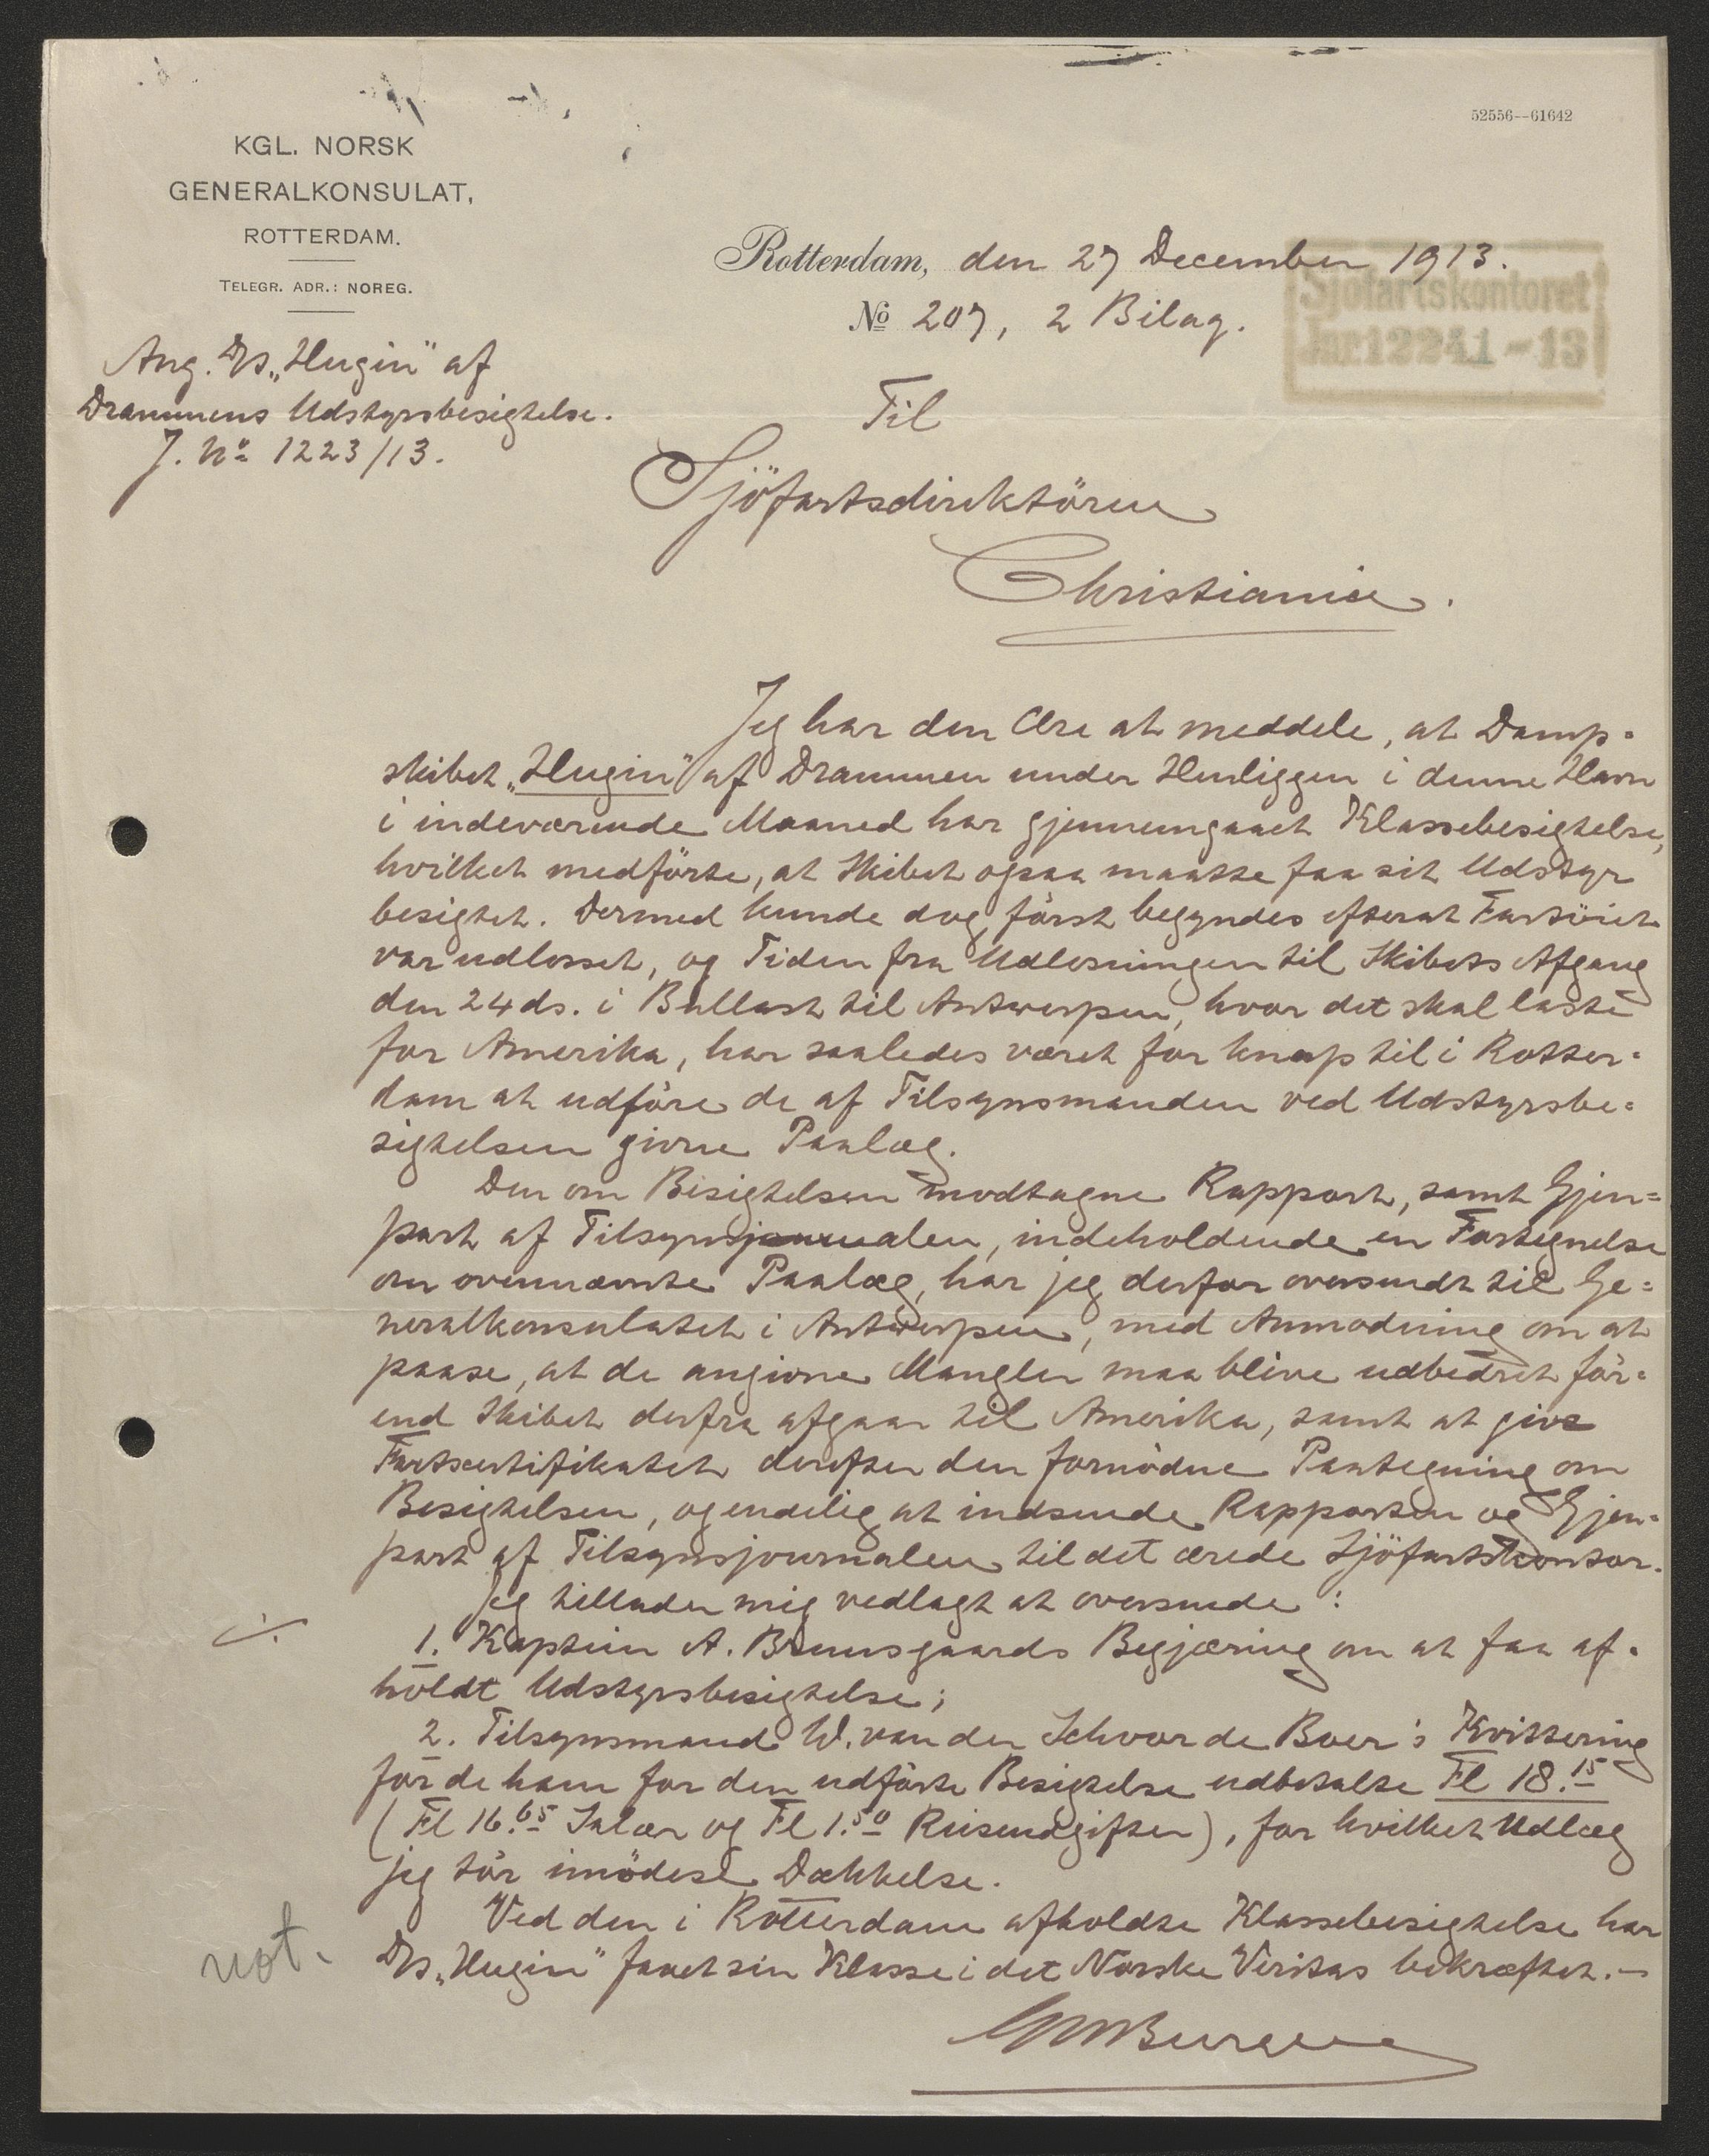 52556--61642
KGL. NORSK
GENERALKONSULAT,
ROTTERDAM.
TELEGR. ADR.: NOREG.
Rotterdam, den 27 December 1913.
No 207, 2 Bilag.
Sjøfartskontoret
Jnr 12241-13
Ang. D/S „Hugin" af
Drammens Udstyrsbesigtelse.
J. No 1223/13.
Til
Sjöfartsdirektören
Christiania.
Jeg har den Ære at meddele, at Damp-
skibet „Hugin" af Drammen under Henliggen i denne Havn
i indeværende Maaned har gjennemgaaet Klassebesigtelse,
hvilket medförte, at Skibet ogsaa maatte faa sit Udstyr
besigtet. Dermed kunde dog först begyndes efterat Fartöiet
var udlosset, og Tiden fra Udlosningen til Skibets Afgang
den 24 ds. i Ballast til Antwerpen, hvor det skal laste
for Amerika, har saaledes været for knap til i Rotter-
dam at udföre de af Tilsynsmanden ved Udstyrsbe-
sigtelsen givne Paalæg.
Den om Besigtelsen modtagne Rapport, samt Gjen-
part af Tilsynsjournalen, indeholdende en Fortegnelse
om ovennævnte Paalæg, har jeg derfor oversendt til Ge-
neralkonsulatet i Antwerpen, med Anmodning om at
paase, at de angivne Mangler maa blive udbedret för-
end Skibet derfra afgaar til Amerika, samt at give
Fartscertifikatet derefter den fornödne Paategning om
Besigtelsen, og endelig at indsende Rapporten og Gjen-
part af Tilsynsjournalen til det ærede Sjöfartskontor.
Jeg tillader mig vedlagt at oversende:
1. Kaptein A. Bruusgaards Begjæring om at faa af-
holdt Udstyrsbesigtelse;
2. Tilsynsmand W. van der Schoor de Boer's Kvittering
for de ham for den udförte Besigtelse udbetalte Fl 18.15
(Fl 16.65 Salær og Fl 1.50 Reiseudgifter), for hvilket Udlæg
jeg tör imödese Dækkelse.
Ved den i Rotterdam afholdte Klassebesigtelse har
D/S „Hugin" faaet sin Klasse i det Norske Veritas bekræftet.—
not.